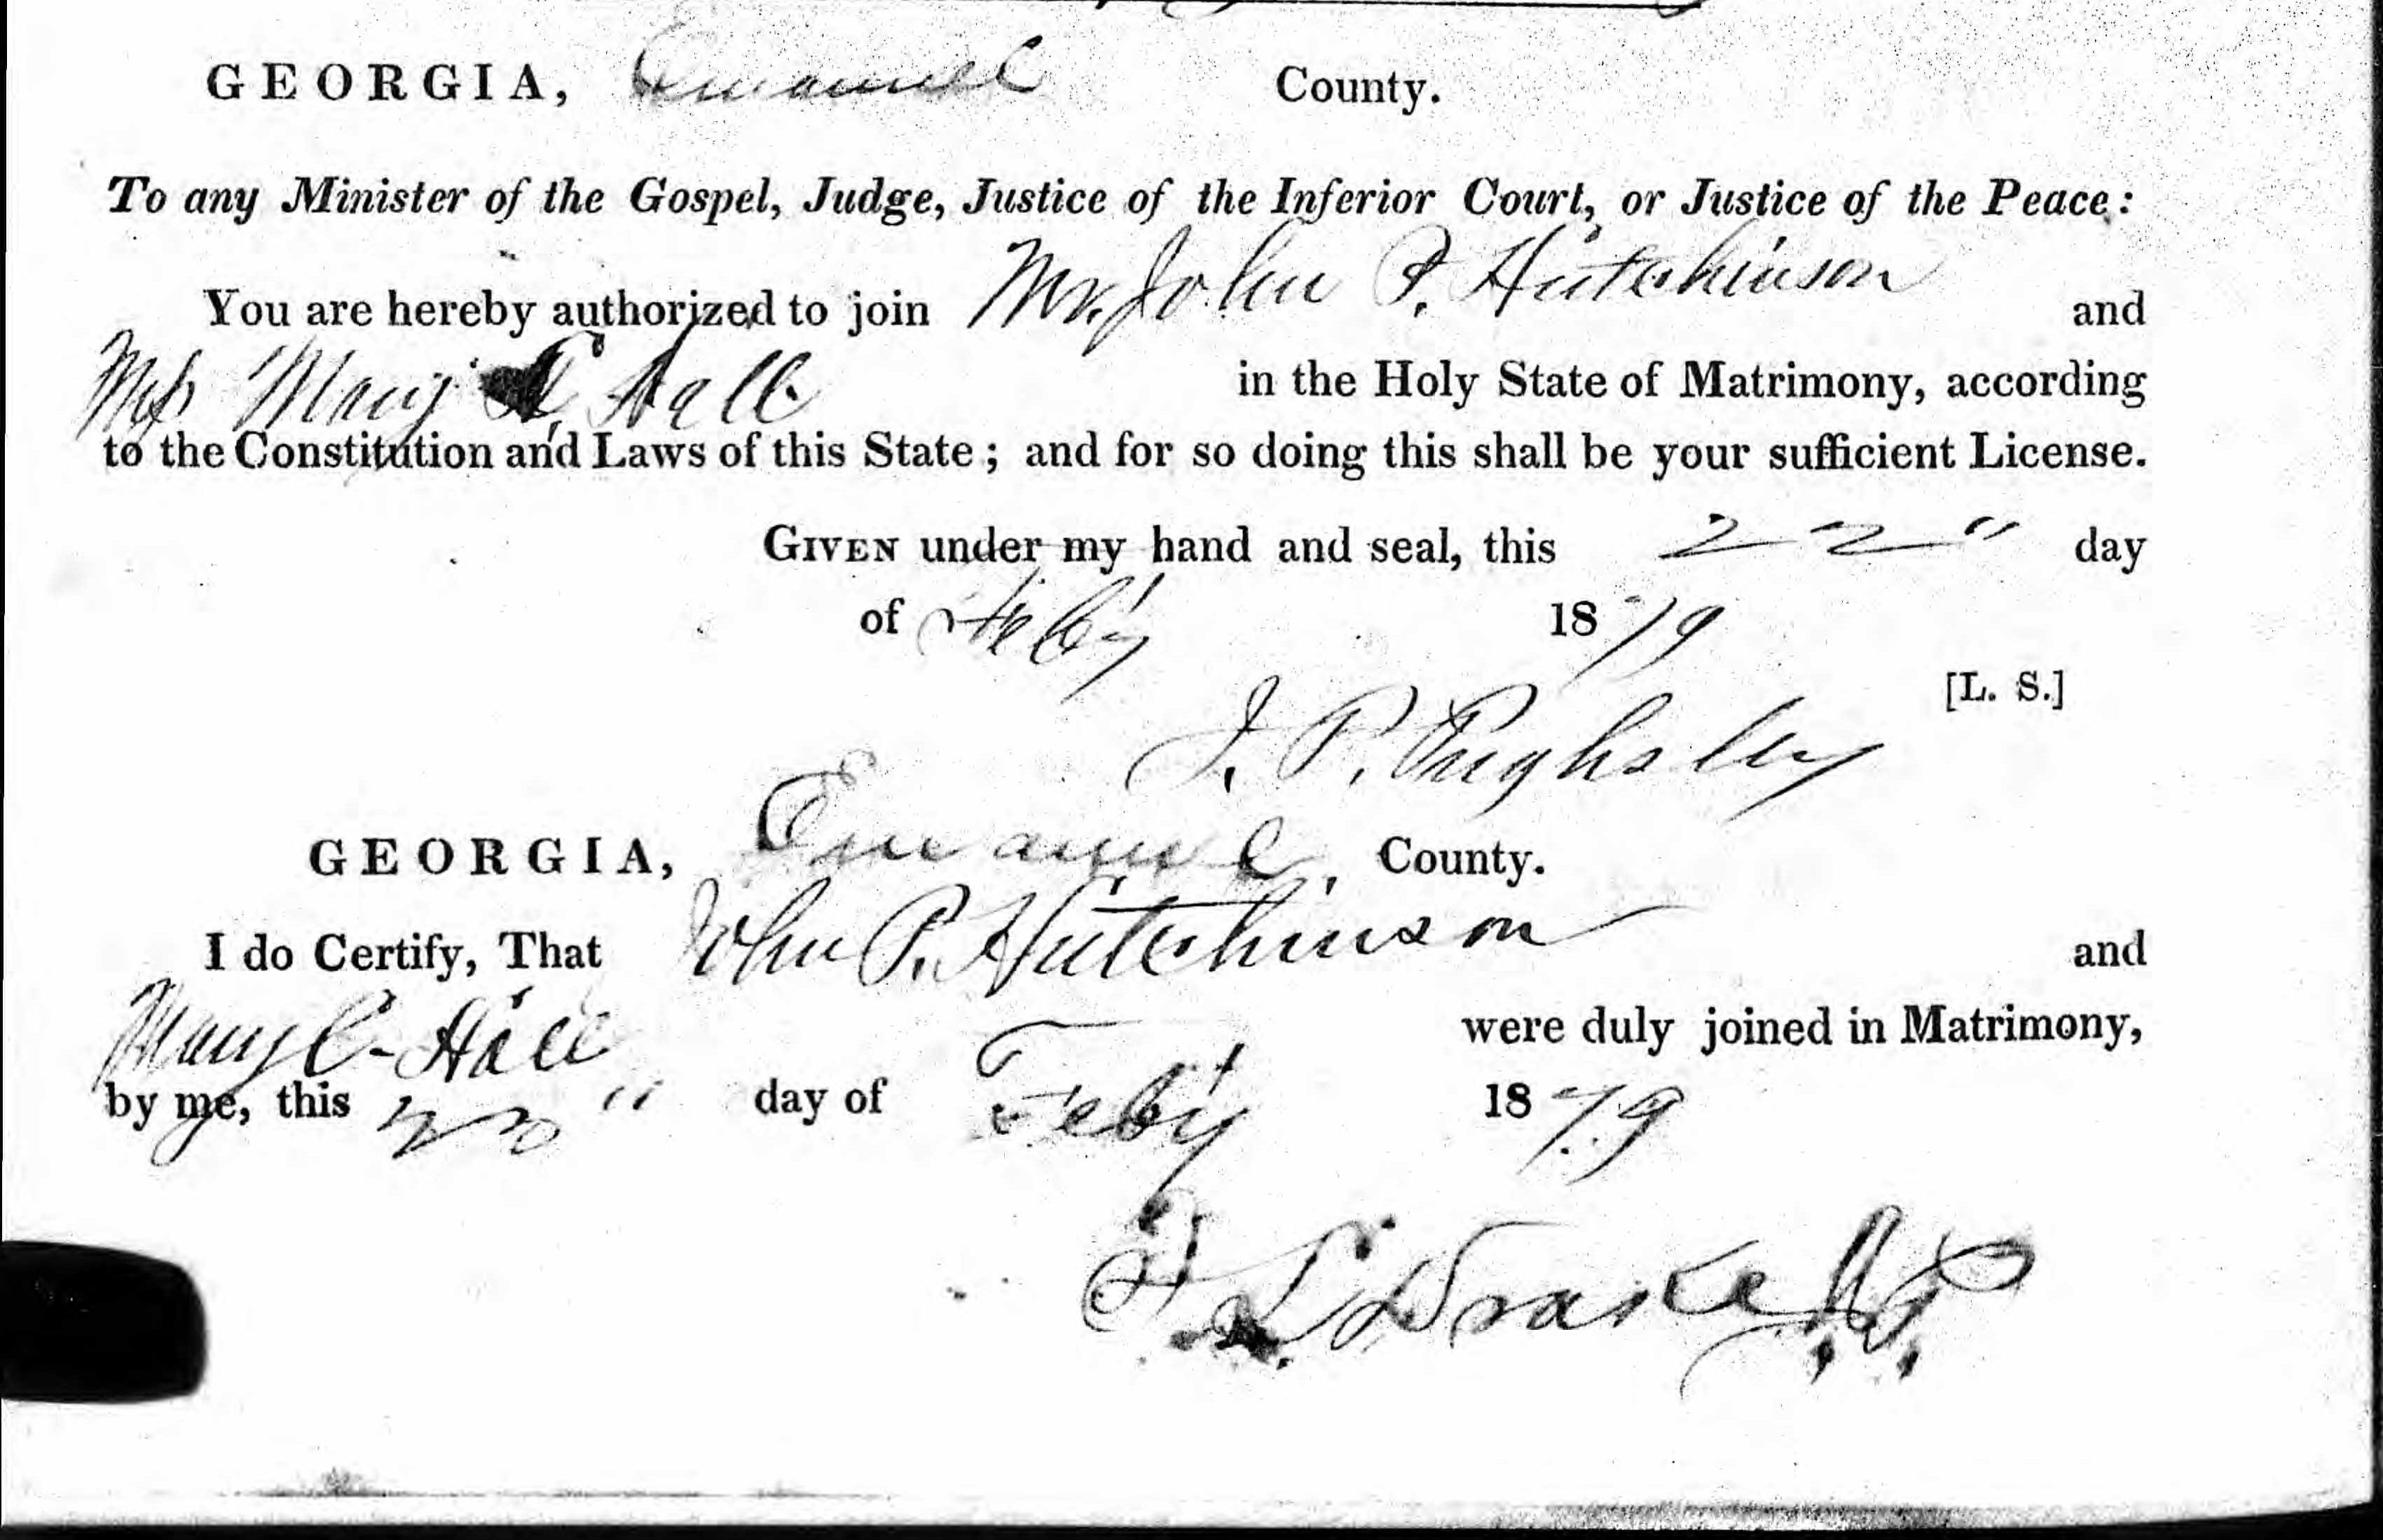 GEORGIA, Emanuel County.
To any Minister of the Gospel, Judge, Justice of the Inferior Court, or Justice of the Peace:
You are hereby authorized to join Mr. John P. Hutchinson and
Miss Mary Hall in the Holy State of Matrimony, according
to the Constitution and Laws of this State; and for so doing this shall be your sufficient License.
GIVEN under my hand and seal, this 22" day
of Feby 1879
[L. S.]
J. P. Pughsley
GEORGIA, Emanuel County.
I do Certify, That John P. Hutchinson and
Mary C. Hall were duly joined in Matrimony,
by me, this 23" day of Feby 1879
L. Drake